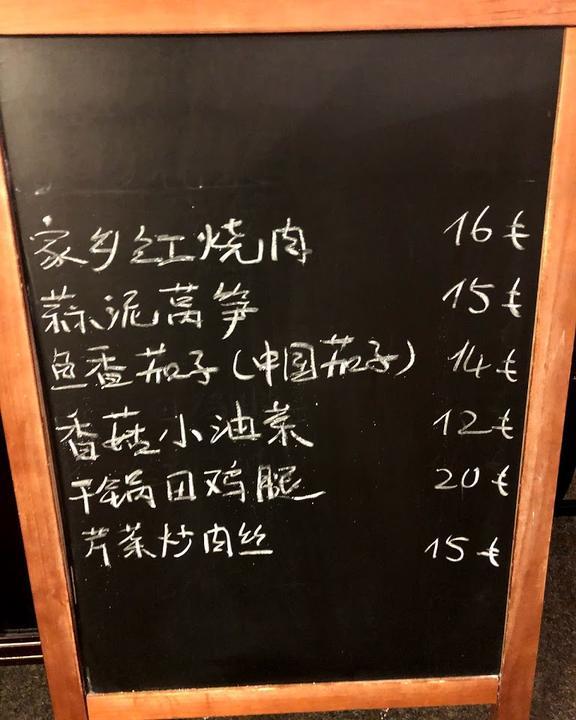 家乡红烧肉 16€
蒜泥莴笋 15€
鱼香茄子(中国茄子) 14€
香菇小油菜 12€
干锅田鸡腿 20€
芹菜炒肉丝 15€